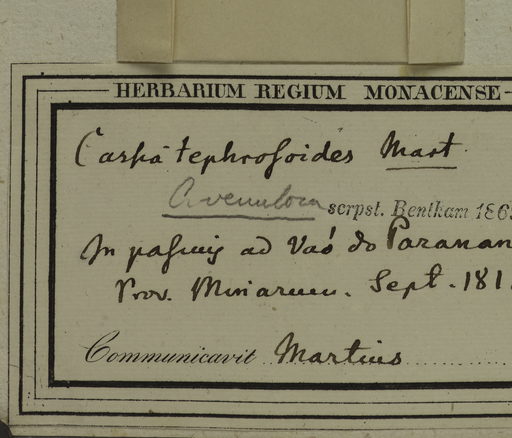 HERBARIUM REGIUM MONACENSE
Cassia tephrosoides Mart.
C. venulosa scrpst. Bentham 186
In pascuis ad Vaõ do Paranan
Prov. Minarum. Sept. 181
Communicavit Martius